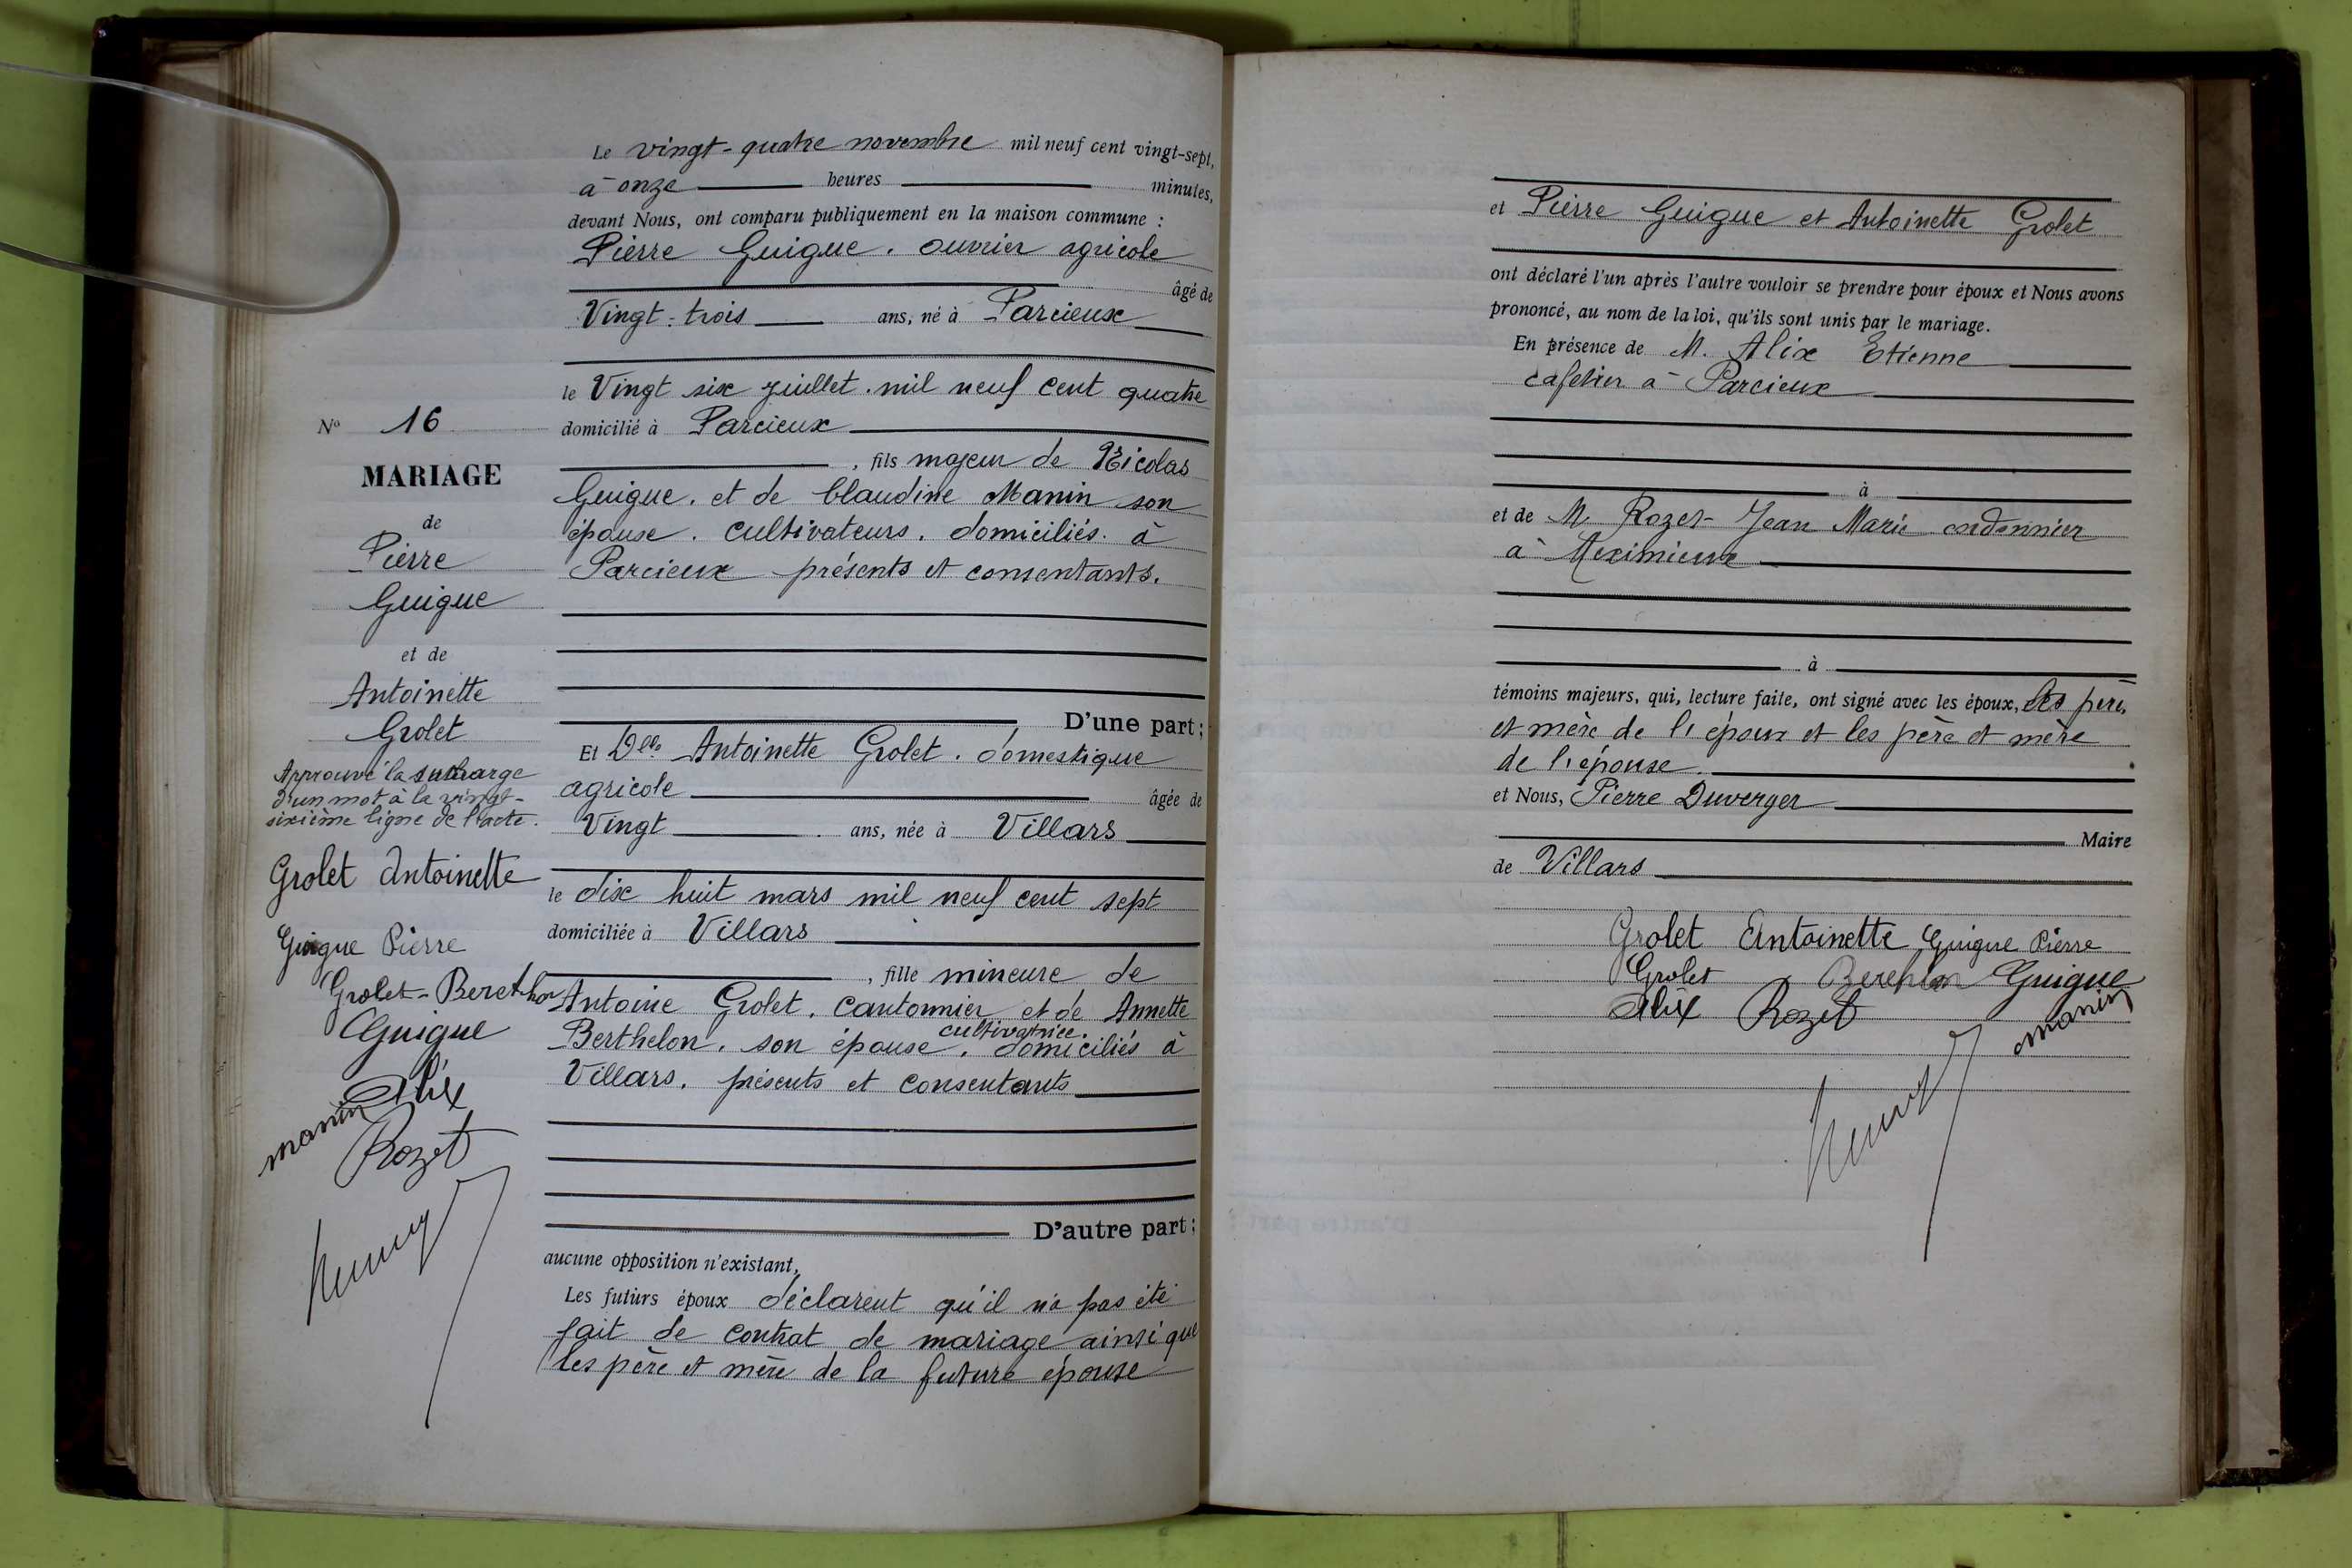 N° 16
MARIAGE
de
Pierre
Guigue
et de
Antoinette
Grolet
Approuvé la surcharge
d'un mot à la vingt-
sixième ligne de l'acte.
Grolet Antoinette
Guigue Pierre
Grolet - Berethon
Guigue
Alix
manin
Rozet
Le vingt-quatre novembre mil neuf cent vingt-sept,
à onze heures minutes,
devant Nous, ont comparu publiquement en la maison commune :
Pierre Guigue. ouvrier agricole
âgé de
Vingt-trois ans, né à Parcieux
le Vingt six juillet. mil neuf cent quatre
domicilié à Parcieux
, fils majeur de Nicolas
Guigue. et de Claudine Manin son
épouse. cultivateurs. domiciliés. à
Parcieux présents et consentants.
D'une part;
Et Dlle Antoinette Grolet. domestique
agricole âgée de
Vingt ans, née à Villars
le dix huit mars mil neuf cent sept
domiciliée à Villars
, fille mineure de
Antoine Grolet. cantonnier et de Annette
cultivatrice.
Berthelon. son épouse. domiciliés à
Villars. présents et consentants
D'autre part;
aucune opposition n'existant,
Les futurs époux déclarent qu'il n'a pas été
fait de contrat de mariage ainsi que
les père et mère de la future épouse
et Pierre Guigue et Antoinette Grolet
ont déclaré l'un après l'autre vouloir se prendre pour époux et Nous avons
prononcé, au nom de la loi, qu'ils sont unis par le mariage.
En présence de M. Alix Etienne
cafetier à Parcieux
à
et de M Rozet Jean Marie cordonnier
à Meximieux
à
témoins majeurs, qui, lecture faite, ont signé avec les époux, les père
et mère de l'époux et les père et mère
de l'épouse.
et Nous, Pierre Duverger
Maire
de Villars
Grolet Antoinette Guigue Pierre
Grolet Guigue
Alix Rozet manin